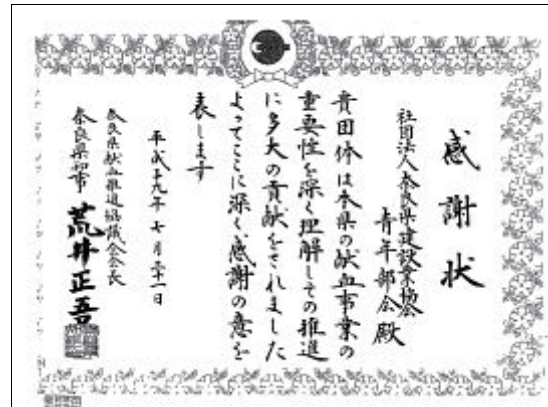 感謝状
社団法人奈良県建設業協会
青年部会殿
貴団体は本県の献血事業の
重要性を深く理解しその推進
に多大の貢献をされました
よってここに深く感謝の意を
表します
平成十九年七月二十一日
奈良県献血推進協議会会長
奈良県知事 荒井正吾